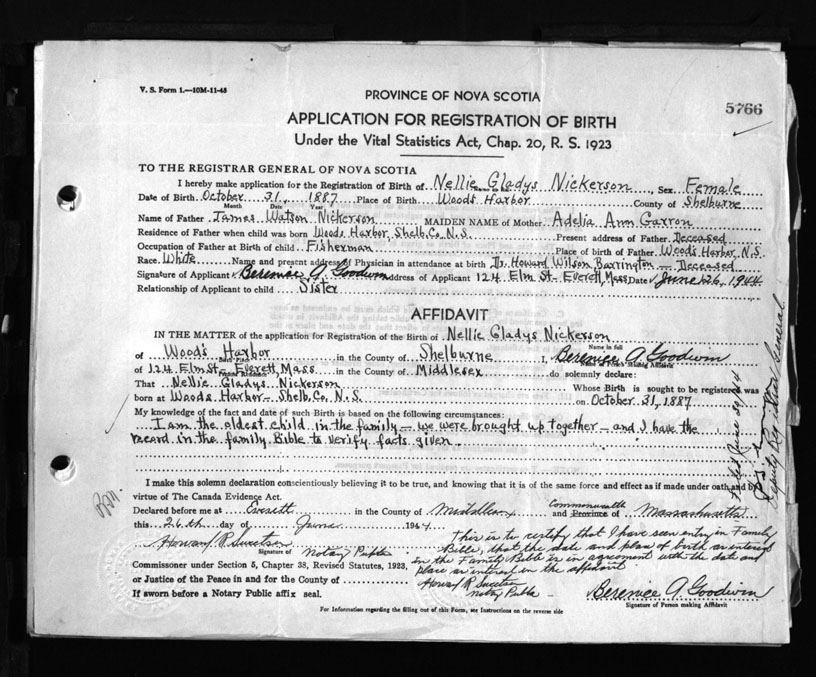 V. S. Form 1.—10M-11-43
PROVINCE OF NOVA SCOTIA
5766
APPLICATION FOR REGISTRATION OF BIRTH
Under the Vital Statistics Act, Chap. 20, R. S. 1923
TO THE REGISTRAR GENERAL OF NOVA SCOTIA
I hereby make application for the Registration of Birth of Nellie Gladys Nickerson, Sex Female
Date of Birth October 31, 1887 Place of Birth Woods Harbor County of Shelburne
Month Date Year
Name of Father James Watson Nickerson MAIDEN NAME of Mother Adelia Ann Garron
Residence of Father when child was born Woods Harbor, Shelb. Co. N.S. Present address of Father Deceased
Occupation of Father at Birth of child Fisherman Place of Birth of Father Woods Harbor, N.S.
Race White Name and present address of Physician in attendance at birth Dr. Howard Wilson, Barrington — Deceased
Signature of Applicant Berenice A. Goodwin Address of Applicant 124 Elm St. Everett, Mass Date June 26, 1944
Relationship of Applicant to child Sister
AFFIDAVIT
IN THE MATTER of the application for Registration of the Birth of Nellie Gladys Nickerson
Name in full
of Woods Harbor in the County of Shelburne I, Berenice A Goodwin
Birth Place Name of Person Making Affidavit
of 124 Elm St. Everett Mass in the County of Middlesex do solemnly declare:
Present Residence
That Nellie Gladys Nickerson Whose Birth is sought to be registered was
born at Woods Harbor - Shelb. Co. N.S. on October 31, 1887
My knowledge of the fact and date of such Birth is based on the following circumstances:
I am the oldest child in the family — we were brought up together — and I have the
record in the family Bible to verify facts given.
I make this solemn declaration conscientiously believing it to be true, and knowing that it is of the same force and effect as if made under oath and by
virtue of The Canada Evidence Act.
Commonwealth
Declared before me at Everett in the County of Middlesex and Province of Massachusetts
this 26th day of June 1944
Howard R Sweetser
Signature of Notary Public
This is to certify that I have seen entry in Family
Bible, that the date and place of birth as entered
in the Family Bible is in agreement with the date and
place as entered in the affidavit
Howard R Sweetser
Notary Public
Commissioner under Section 5, Chapter 38, Revised Statutes, 1923,
or Justice of the Peace in and for the County of
If sworn before a Notary Public affix seal.
Berenice A Goodwin
Signature of Person making Affidavit
For Information regarding the filling out of this Form, see Instructions on the reverse side
June 30/44
Deputy Registrar General